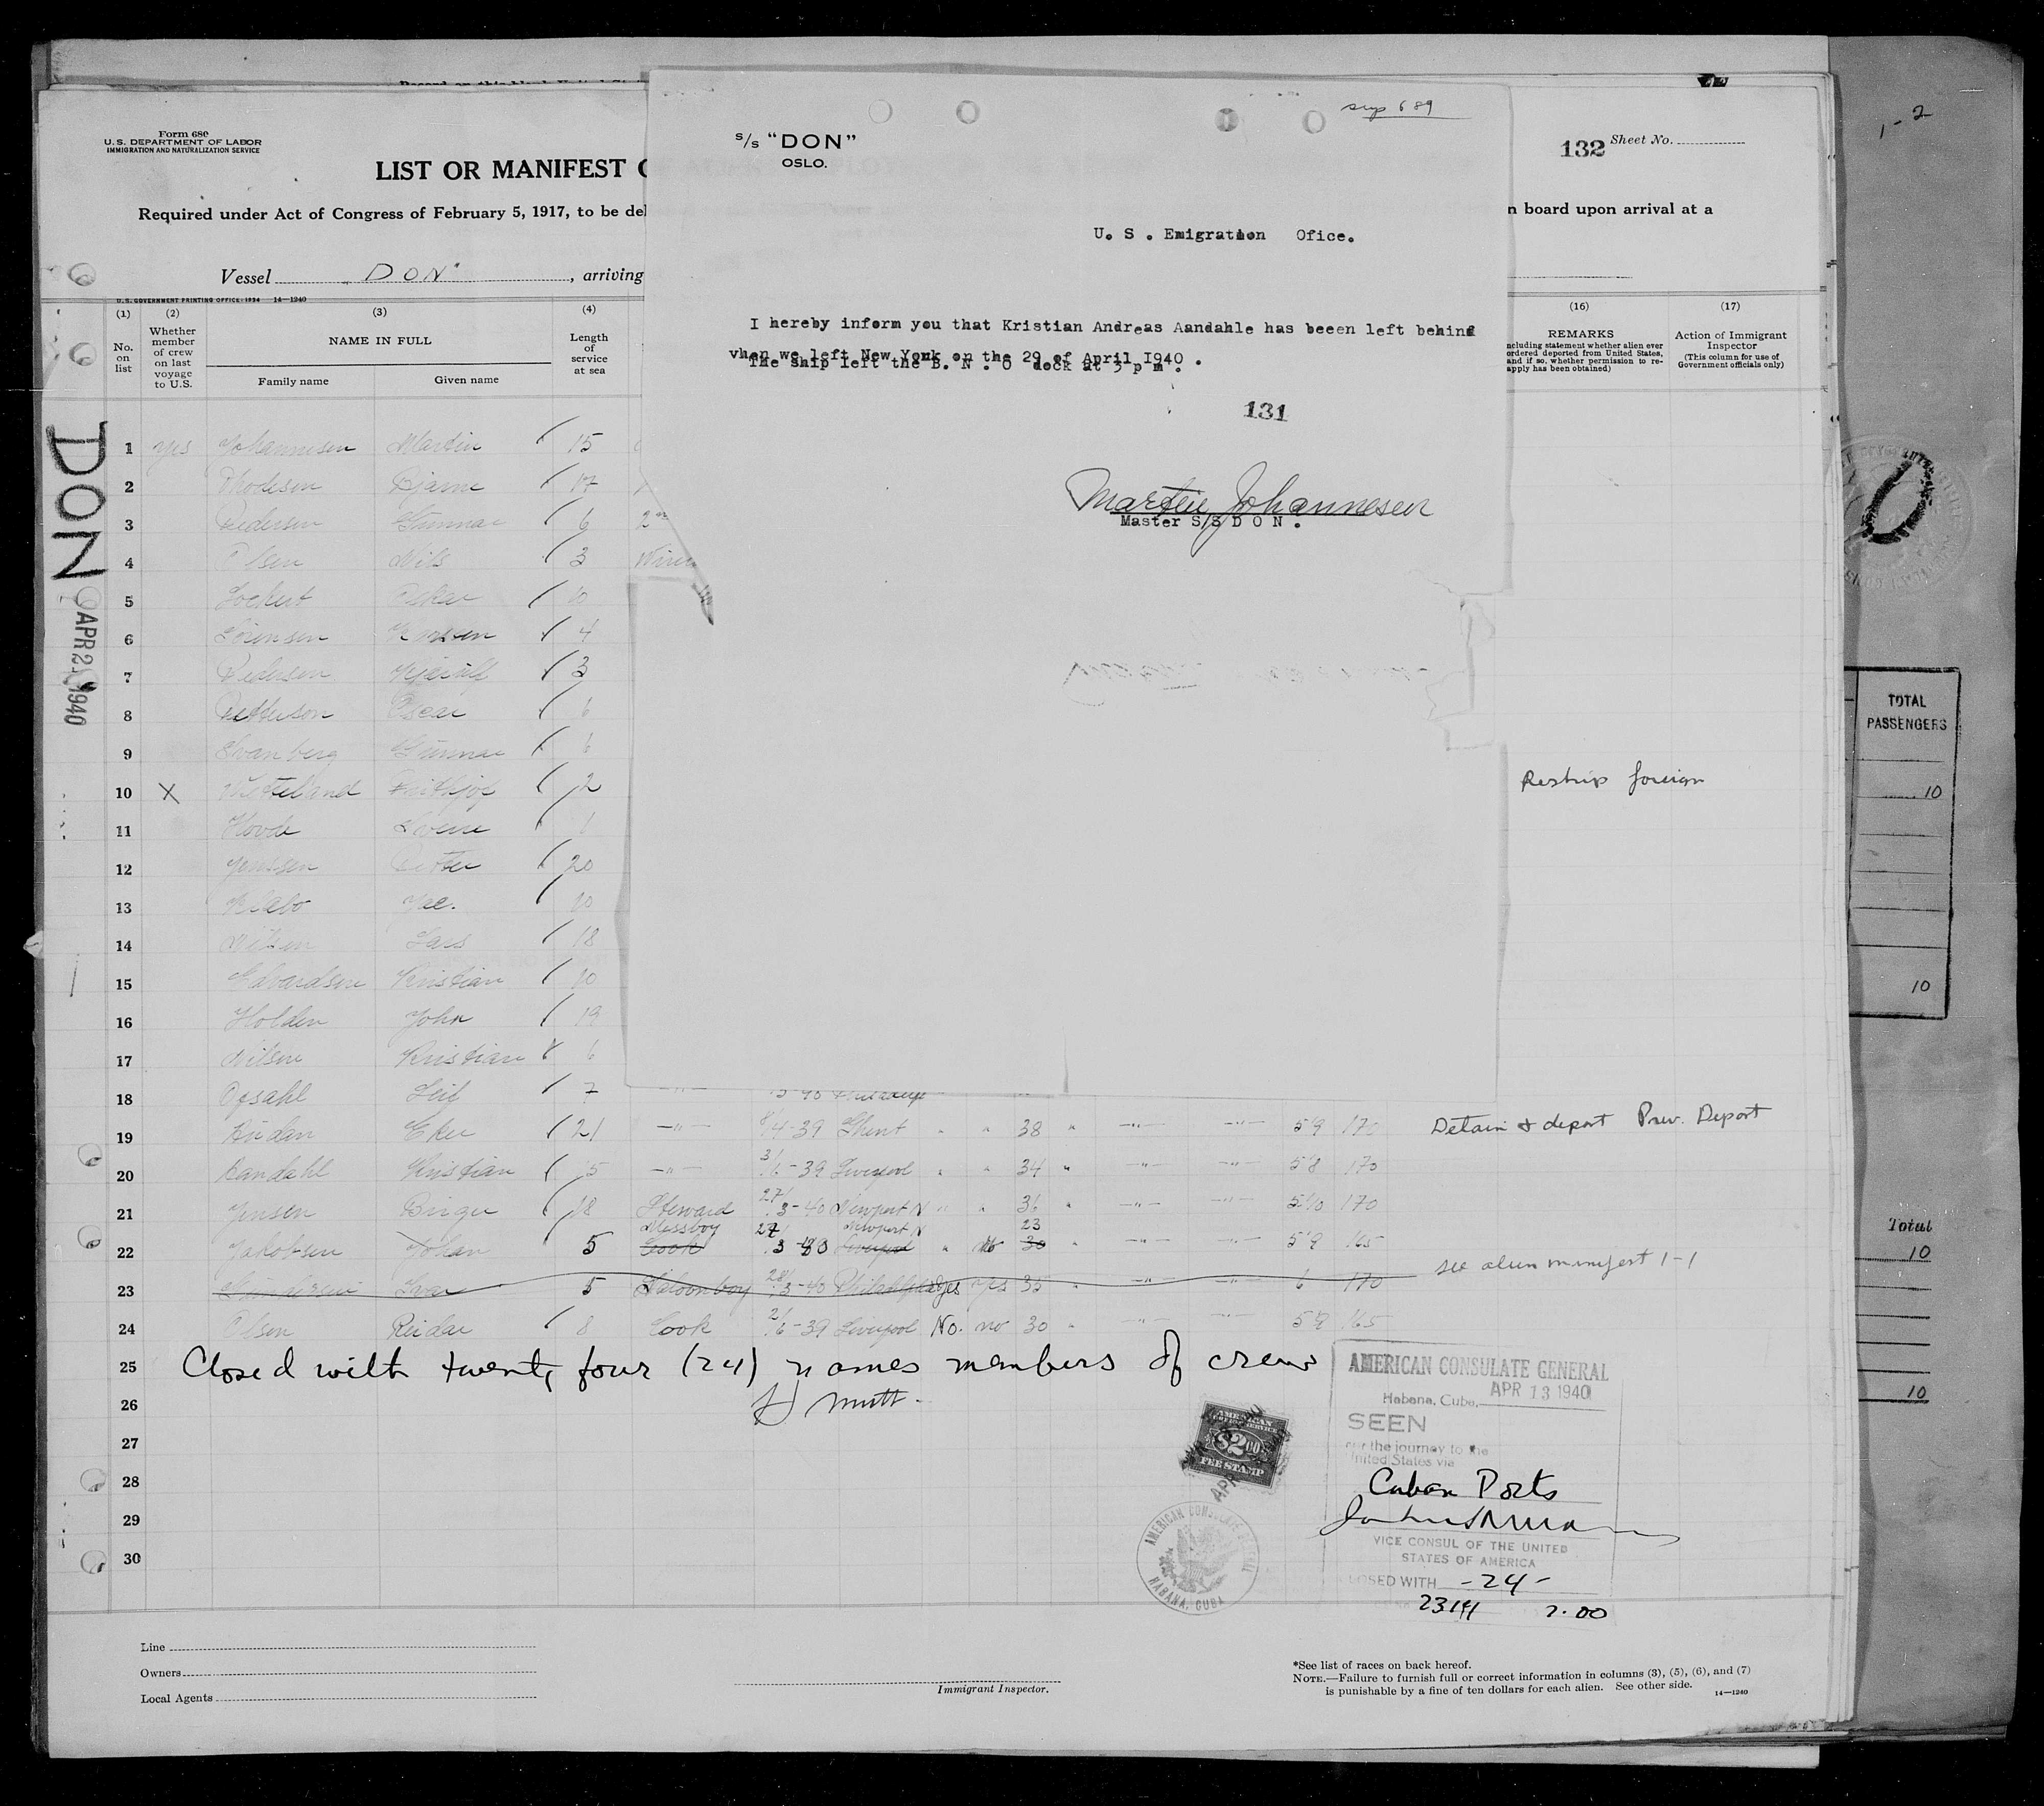 Form 680
U.S. DEPARTMENT OF LABOR
IMMIGRATION AND NATURALIZATION SERVICE
LIST OR MANIFEST
Required under Act of Congress of February 5, 1917, to be
Vessel DON, arriving
U.S. GOVERNMENT PRINTING OFFICE: 1934 14—1240
132 Sheet No.
n board upon arrival at a
1 - 2
sup 689
s/s "DON"
OSLO.
U. S . Emigration Ofice.
I hereby inform you that Kristian Andreas Aandahle has beeen left behind
vhen we left New York on the 29 of April 1940 .
The ship left the B. N . O dock at 3 p m .
131
Martin Johannesen
Master S/S D O N .
(1) No. on list
(2) Whether member of crew on last voyage to U.S.
(3) NAME IN FULL
Family name Given name
(4) Length of service at sea
(16) REMARKS
ncluding statement whether alien ever
ordered deported from United States,
and if so, whether permission to re-
apply has been obtained)
(17) Action of Immigrant Inspector
(This column for use of Government officials only)
DON
APR 2 1940
1 yes Johannesen Martin 15
2 Bjarne 17
3 Pedersen Gunnar 6 2
4 Olsen Nils 3
5 Lockert Oskar 10
6 Sörensen Karsten 4
7 Pedersen 3
8 Petterson Oscar 6
9 Svanberg Gunnar 6
10 X Frithjof 2 Reship foreign
11 Hovde Sverre 1
12 Jenssen Petter 20
13 10
14 Nilsen Lars 18
15 Edvardsen Kristian 10
16 Holden John 19
17 Nilsen Kristian 6
18 Opsahl Leif 7
19 21 —"— 8/4-39 Ghent " " 38 " —"— —"— 5'9 170 Detain & deport Prev. Deport
20 Aandahl Kristian 5 —"— 3/6-39 Liverpool " " 34 " —"— —"— 5'8 170
21 Jensen Birger 18 Steward 27/3-40 Newport N " " 36 " —"— —"— 5'10 170
Messboy 27 Newport N 23
22 Jakobsen Johan 5 Cook 3-40 Liverpool " no 30 " —"— —"— 5'9 165
23 Ivar 5 Saloonboy 28/3-40 Philadelphia yes yes 35 " —"— —"— 6 170 see alien manifest 1-1
24 Olsen Reidar 8 Cook 2/6-39 Liverpool No. no 30 " —"— —"— 5'9 165
25 Closed with twenty four (24) names members of crew
26
27
28
29
30
AMERICAN CONSULATE GENERAL
APR 13 1940
Habana, Cuba,
SEEN
for the journey to the
United States via
Cuban Ports
VICE CONSUL OF THE UNITED
STATES OF AMERICA
CLOSED WITH -24-
2.00
AMERICAN
$2.00
FEE STAMP
AMERICAN CONSULATE GENERAL
HABANA, CUBA
Line
Owners
Local Agents
Immigrant Inspector.
*See list of races on back hereof.
NOTE.—Failure to furnish full or correct information in columns (3), (5), (6), and (7)
is punishable by a fine of ten dollars for each alien. See other side.
14—1240
TOTAL
PASSENGERS
10
10
Total
10
10